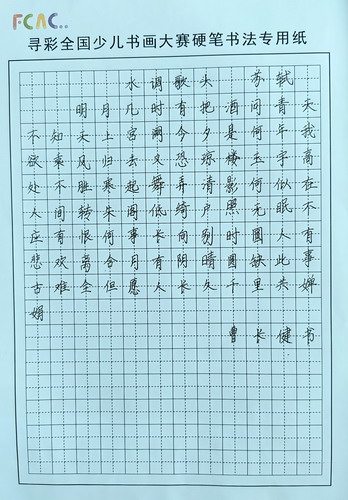 FCAC
寻彩全国少儿书画大赛硬笔书法专用纸
水调歌头 苏轼
明月几时有把酒问青天
不知天上宫阙今夕是何年我
欲乘风归去又恐琼楼玉宇高
处不胜寒起舞弄清影何似在
人间转朱阁低绮户照无眠不
应有恨何事长向别时圆人有
悲欢离合月有阴晴圆缺此事
古难全但愿人长久千里共婵
娟
曾长健书